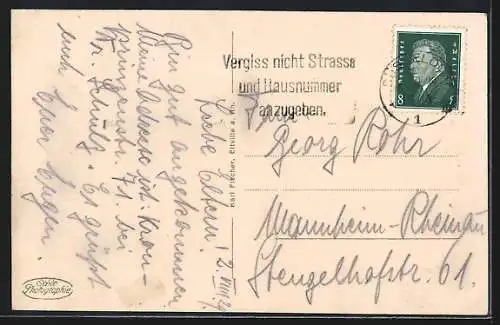 Vergiss nicht Strasse
und Hausnummer
anzugeben.
8
1
Georg Rohr
Mannheim-Rheinau
Stengelhofstr. 61.
2. VIII. 29
Liebe Eltern!
Bin gut angekommen.
Meine Adresse ist: Kron-
prinzenstr. 71. bei
Fr. Schulz. Es grüßt
euch Euer Eugen.
Karl Fischer, Eltville a. Rh.
Echte
Photographie